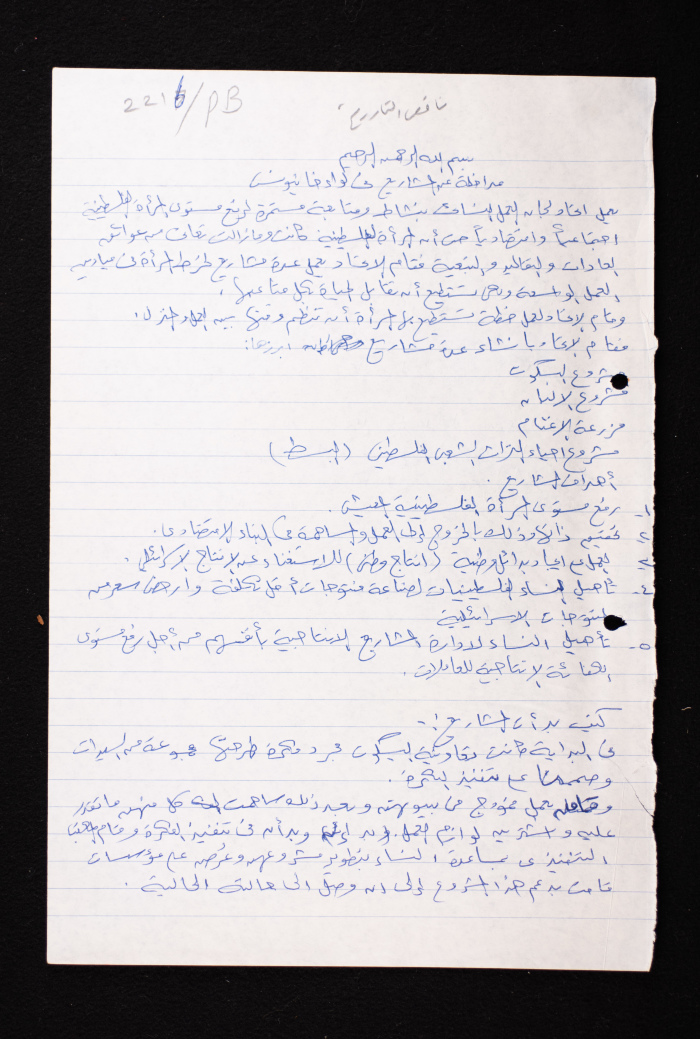 2216/PB
ناقص التاريخ
بسم الله الرحمن الرحيم
مداخلة عن المشاريع في لواء خانيونس
يعمل اتحاد لجان العمل النسائي بنشاط ومتابعة مستمرة لرفع مستوى المرأة الفلسطينية
اجتماعياً واقتصادياً حيث أن المرأة الفلسطينية كانت وما زالت تعاني من عوائق
العادات والتقاليد والتبعية فقام الاتحاد بعمل عدة مشاريع لخرط المرأة في ميادين
العمل الواسعة وهي تستطيع أن تقابل الحياة بكل متاعبها.
وقام الاتحاد بعمل خطة تستطيع بها المرأة أن تنظم وقتها بين العمل والمنزل.
فقام الاتحاد بانشاء عدة مشاريع أبرزها:
مشروع البسكوت
مشروع الألبان
مزرعة الاغنام
مشروع احياء التراث الشعبي الفلسطيني (البسط)
أهداف المشاريع.
١- رفع مستوى المرأة الفلسطينية المعيشي.
٢- تحقيق ذاتها وذلك بالخروج إلى العمل والمساهمة في البناء الاقتصادي.
٣- العمل على ايجاد بدائل وطنية (انتاج وطني) للاستغناء عن الإنتاج الإسرائيلي.
٤- تأهيل النساء الفلسطينيات لصناعة منتوجات أقل تكلفة وارخص سعر من
المنتوجات الاسرائيلية
٥- تأهيل النساء لادارة المشاريع الانتاجية بأنفسهم من أجل رفع مستوى
الكفائة الإنتاجية للعاملات.
كيف بدأت المشاريع:-
في البداية كانت تعاونية البسكوت مجرد فكرة طرحتها مجموعة من السيدات
وصممن على تنفيذ الفكرة.
وقاموا بعمل نموذج في بيوتهن وبعد ذلك ساهمت كل منهن ما تقدر
عليه واشترين لوازم العمل وبدأن في تنفيذ الفكرة وقام المكتب
التنفيذي بمساعدة النساء بتطوير مشروعهن وعرضه على مؤسسات
قامت بدعم هذا المشروع إلى ان وصل الى حالته الحالية.